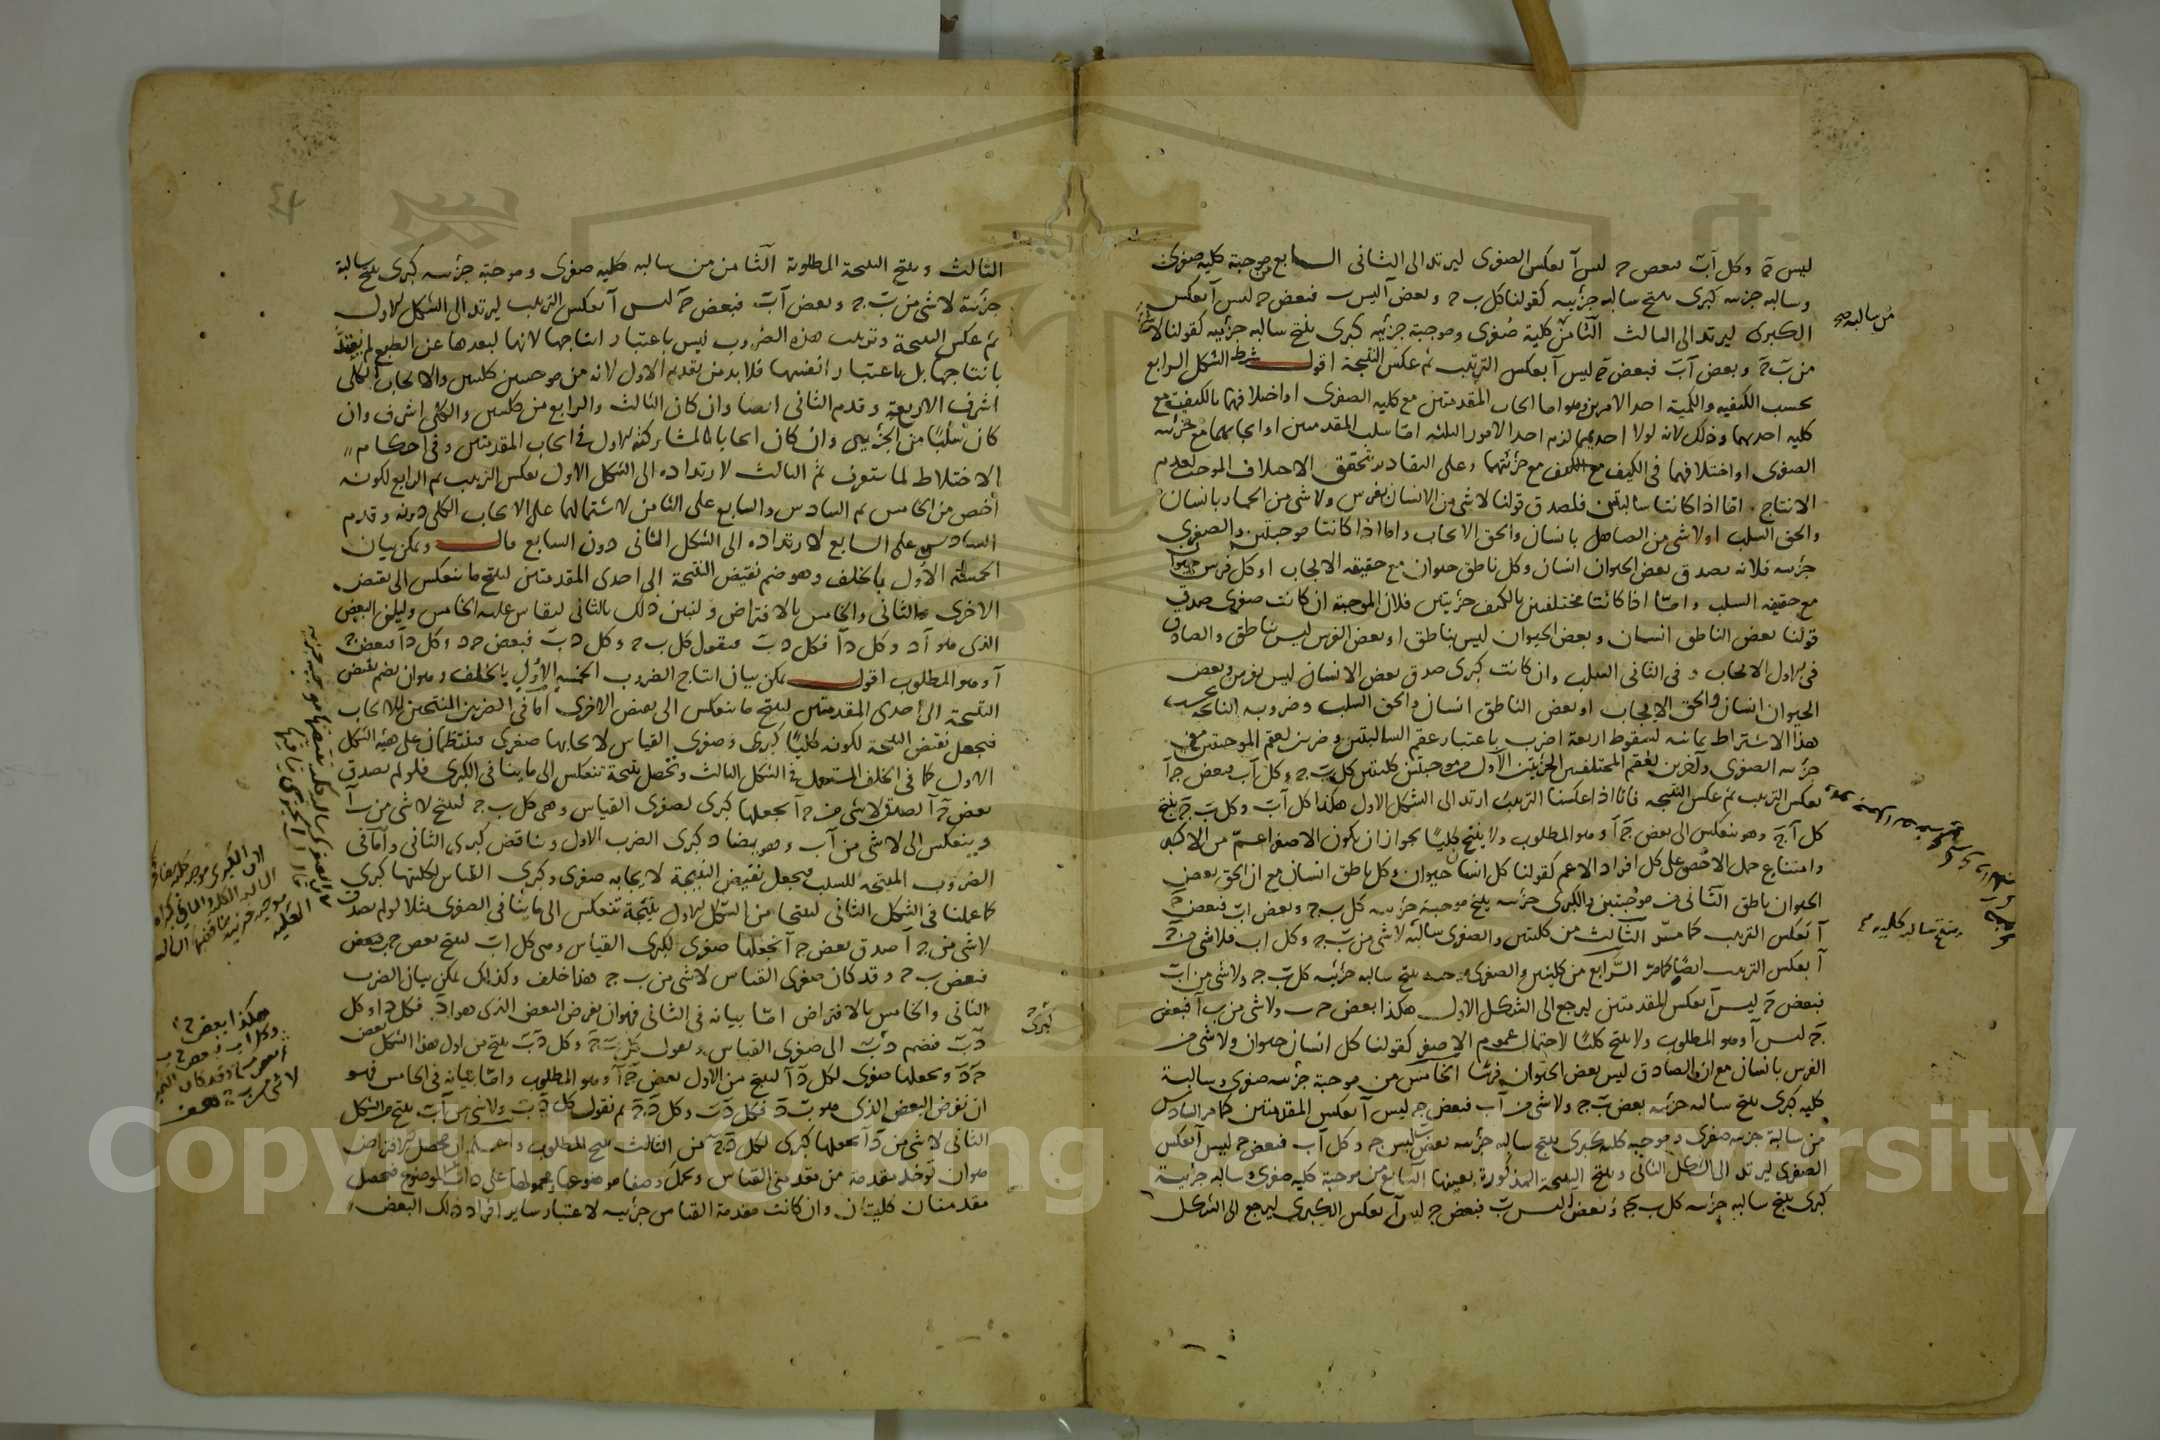 ليس جَ وكل آبَ فبعض جـ ليس آ بعكس الصغرى ليرتد الى الثانى السابع من موجبة كلية صغرى
وسالبة جزئية كبرى ينتج سالبة جزئية كقولنا كل ب جـ وبعض آ ليس ب فبعض جـ ليس آ بعكس
الكبرى ليرتد الى الثالث الثامن كلية صغرى وموجبة جزئية كبرى ينتج سالبة جزئية كقولنا لا شئ
من بَ جَ وبعض آبَ فبعض جَ ليس آ بعكس الترتيب ثم عكس النتيجة اقول شرط الشكل الرابع
بحسب الكيفية والكمية احد الامرين وهو اما ايجاب المقدمتين مع كلية الصغرى او اختلافهما بالكيف مع
كلية احديهما وذلك لانه لولا احديهما لزم احد الامور الثلثة اما سلب المقدمتين او ايجابهما مع جزئية
الصغرى او اختلافهما فى الكيف مع جزئيتهما وعلى التقادير يتحقق الاختلاف الموجب لعدم
الانتاج اما اذا كانتا سالبتين فلصدق قولنا لا شئ من الانسان بفرس ولا شئ من الحمار بانسان
والحق السلب او لا شئ من الصاهل بانسان والحق الايجاب واما اذا كانتا موجبتين والصغرى
جزئية فلانه يصدق بعض الحيوان انسان وكل ناطق حيوان مع حقيقة الايجاب او كل فرس حيوان
مع حقيقة السلب واما اذا كانتا مختلفتين بالكيف جزئيتين فلان الموجبة ان كانت صغرى صدق
قولنا بعض الناطق انسان وبعض الحيوان ليس بناطق او بعض الفرس ليس بناطق والصادق
فى الاول الايجاب وفى الثانى السلب وان كانت كبرى صدق بعض الانسان ليس بفرس وبعض
الحيوان انسان والحق الايجاب او بعض الناطق انسان والحق السلب وضروبه الناتجة بحسب
هذا الاشتراط ثمانية لسقوط اربعة اضرب باعتبار عقم السالبتين وضربين لعقم الموجبتين مع
جزئية الصغرى وآخرين لعقم المختلفتين الجزئيتين الاول من موجبتين كليتين كل بَ جـ وكل آب فبعض جـ آ
بعكس الترتيب ثم عكس النتيجة فانا اذا عكسنا الترتيب ارتد الى الشكل الاول هكذا كل آبَ وكل بَ جَ ينتج
كل آ جَ وهو ينعكس الى بعض جَ آ وهو المطلوب ولا ينتج كليًا لجواز ان يكون الاصغر اعمّ من الاكبر
وامتناع حمل الاخص على كل افراد الاعم كقولنا كل انسان حيوان وكل ناطق انسان مع ان الحق بعض
الحيوان ناطق الثانى من موجبتين والكبرى جزئية ينتج موجبة جزئية كل ب جـ وبعض اب فبعض جَ
آ بعكس الترتيب كما مرّ الثالث من كليتين والصغرى سالبة لا شئ من بَ جـ وكل اب فلا شئ من جـ
آ بعكس الترتيب ايضًا كما مرّ الرابع من كليتين والصغرى موجبة ينتج سالبة جزئية كل بَ جـ ولا شئ من ابَ
فبعض جَ ليس آ بعكس المقدمتين ليرجع الى الشكل الاول هكذا بعض جـ ب ولا شئ من ب آ فبعض
جَ ليس آ وهو المطلوب ولا ينتج كليًا لاحتمال عموم الاصغر كقولنا كل انسان حيوان ولا شئ من
الفرس بانسان مع ان الصادق ليس بعض الحيوان فرسًا الخامس من موجبة جزئية صغرى وسالبة
كلية كبرى ينتج سالبة جزئية بعض بَ جـ ولا شئ من آب فبعض جـ ليس آ بعكس المقدمتين كما مر السادس
من سالبة جزئية صغرى وموجبة كلية كبرى ينتج سالبة جزئية بعض ب ليس جـ وكل آب فبعض جـ ليس آ بعكس
الصغرى ليرتد الى الشكل الثانى وينتج النتيجة المذكورة بعينها السابع من موجبة كلية صغرى وسالبة جزئية
كبرى ينتج سالبة جزئية كل ب جـ وبعض آ ليس بَ فبعض جـ ليس آ بعكس الكبرى ليرجع الى الشكل
من سالبة صح
وينتج سالبة كلية
الثالث وينتج النتيجة المطلوبة الثامن من سالبة كلية صغرى وموجبة جزئية كبرى ينتج سالبة
جزئية لا شئ من بَ جـ وبعض آبَ فبعض جَ ليس آ بعكس الترتيب ليرتد الى الشكل الاول
ثم عكس النتيجة وترتيب هذه الضروب ليس باعتبار انتاجها لانها لبعدها عن الطبع لم يعتد
بانتاجها بل باعتبار انفسها فلا بد من تقديم الاول لانه من موجبتين كليتين والايجاب الكلى
اشرف الاربعة وقدم الثانى ايضا وان كان الثالث والرابع من كليتين والكلى اشرف وان
كان سلبًا من الجزئى وان كان ايجابا لمشاركته الاول فى ايجاب المقدمتين وفى احكام
الاختلاط لما ستعرف ثم الثالث لارتداده الى الشكل الاول بعكس الترتيب ثم الرابع لكونه
اخص من الخامس ثم السادس والسابع على الثامن لاشتمالهما على الايجاب الكلى دونه وقدم
السادس على السابع لارتداده الى الشكل الثانى دون السابع قال ويمكن بيان
الخمسة الاول بالخلف وهو ضم نقيض النتيجة الى احدى المقدمتين لينتج ما ينعكس الى نقيض
الاخرى والثانى والخامس بالافتراض ولنبين ذلك بالثانى ليقاس عليه الخامس وليكن البعض
الذى هو آ د وكل د آ فكل د بَ فنقول كل ب جـ وكل د بَ فبعض جـ د وكل د آ فبعض جـ
آ وهو المطلوب اقول يمكن بيان انتاج الضروب الخمسة الاول بالخلف وهو ان يضم نقيض
النتيجة الى احدى المقدمتين لينتج ما ينعكس الى نقيض الاخرى اما فى الضربين المنتجين للايجاب
فيجعل نقيض النتيجة لكونه كليًا كبرى وصغرى القياس لايجابها صغرى فينتظمان على هيئة الشكل
الاول كما فى الخلف المستعمل فى الشكل الثالث ويحصل نتيجة تنعكس الى ما ينافى الكبرى فلو لم يصدق
بعض جَ آ لصدق لا شئ من جـ آ نجعلها كبرى لصغرى القياس وهى كل ب جـ لينتج لا شئ من ب آ
وينعكس الى لا شئ من آب وهو يضاد كبرى الضرب الاول ويناقض كبرى الثانى واما فى
الضروب المنتجة للسلب فيجعل نقيض النتيجة لايجابه صغرى وكبرى القياس لكليتها كبرى
كما عملنا فى الشكل الثانى لينتجا من الشكل الاول نتيجة تنعكس الى ما ينافى الصغرى مثلا لو لم يصدق
لا شئ من جـ آ صدق بعض جـ آ نجعلها صغرى لكبرى القياس وهى كل اب لينتج بعض جـ ب فبعض
فبعض ب جـ وقد كان صغرى القياس لا شئ من ب جـ هذا خلف وكذلك يمكن بيان الضرب
الثانى والخامس بالافتراض اما بيانه فى الثانى فهو ان يفرض البعض الذى هو ا دَ فكل د ا وكل
دَبَ فنضم دَبَ الى صغرى القياس ونقول كل بَ جَ وكل دَبَ ينتج من اول هذا الشكل بعض
جَ دَ ونجعلها صغرى لكل دَ آ لينتج من الاول بعض جَ آ وهو المطلوب واما بيانه فى الخامس فهو
ان نفرض البعض الذى هو بَ دَ فكل دَبَ وكل دَ جَ ثم نقول كل دَبَ ولا شئ من آبَ ينتج من الشكل
الثانى لا شئ من دَ آ نجعلها كبرى لكل دَ جَ فمن الثالث ينتج المطلوب واعلم ان محصل الافتراض
هو ان تؤخذ مقدمة من مقدمتى القياس ويحمل وصفا موضوعها ومحمولها على ذات الموضوع فيحصل
مقدمتان كليتان وان كانت مقدمة القياس جزئية لاعتبار ساير افراد ذلك البعض
كبرى
لان الكبرى موجبة كلية
هكذا بعض جـ ا
وكل اب فبعض جـ ب